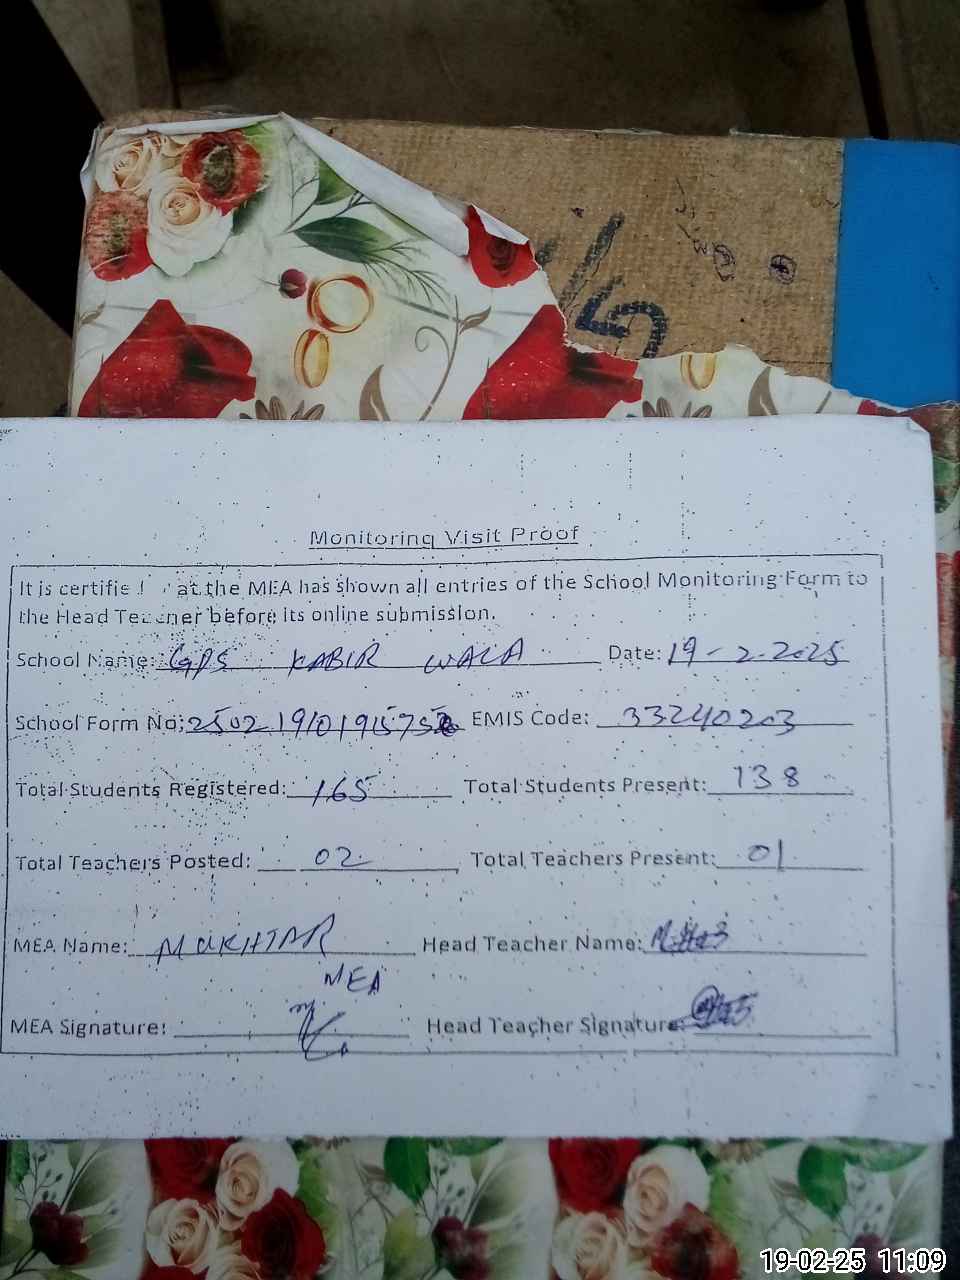 Monitoring Visit Proof
It is certifie at the MEA has shown all entries of the School Monitoring Form to
the Head Teacher before its online submission.
School Name: GPS KABIR WALA Date: 19-2-2025
School Form No: EMIS Code: 33240203
Total Students Registered: 165 Total Students Present: 138
Total Teachers Posted: 02 Total Teachers Present: 01
MEA Name: MUKHTAR Head Teacher Name:
MEA
MEA Signature: Head Teacher Signature:
19-02-25 11:09